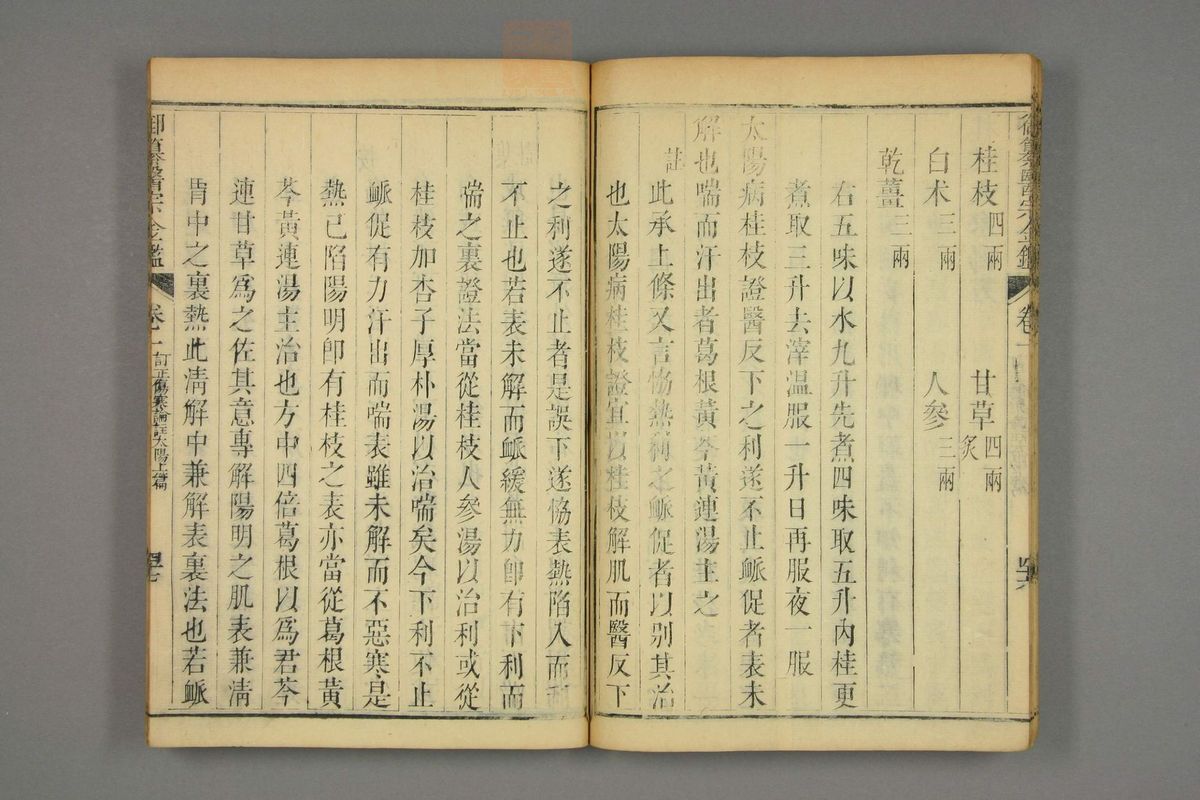 御纂醫宗金鑑 卷一 四六
桂枝四兩 甘草四兩炙
白朮三兩 人參三兩
乾薑三兩
右五味以水九升先煮四味取五升內桂更
煮取三升去滓溫服一升日再服夜一服
太陽病桂枝證醫反下之利遂不止脈促者表未
解也喘而汗出者葛根黃芩黃連湯主之
註此承上條又言協熱利之脈促者以别其治
也太陽病桂枝證宜以桂枝解肌而醫反下
之利遂不止者是誤下遂協表熱陷入而利
不止也若表未解而脈緩無力卽有下利而
喘之裏證法當從桂枝人參湯以治利或從
桂枝加杏子厚朴湯以治喘矣今下利不止
脈促有力汗出而喘表雖未解而不惡寒是
熱已陷陽明卽有桂枝之表亦當從葛根黃
芩黃連湯主治也方中四倍葛根以爲君芩
連甘草爲之佐其意專解陽明之肌表兼淸
胃中之裏熱此淸解中兼解表裏法也若脈
御纂醫宗金鑑 卷一 訂正傷寒論註太陽上篇 四七